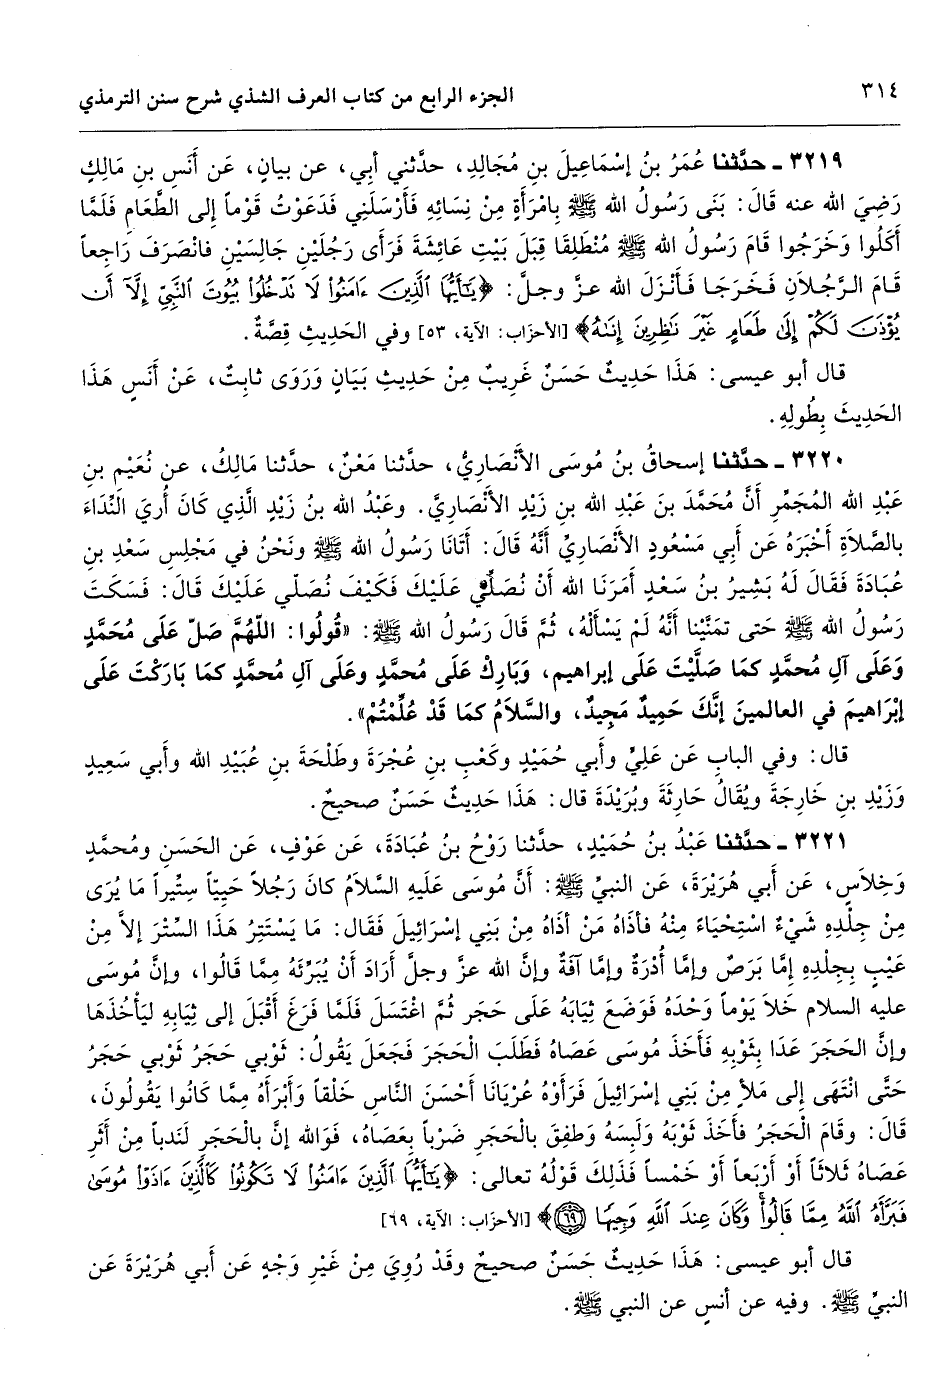 ٣١٤ الجزء الرابع من كتاب العرف الشذي شرح سنن الترمذي
٣٢١٩ ـ حدَّثنا عُمَرُ بنُ إسْمَاعِيلَ بنِ مُجَالِدِ، حدَّثني أبي، عن بيانٍ، عَن أَنَسِ بنِ مَالِكٍ
رَضِيَ الله عنه قَالَ: بَنَى رَسُولُ الله ﷺ بِامْرَأَةٍ مِنْ نِسَائِهِ فَأَرْسَلَنِي فَدَعَوْتُ قَوْماً إلى الطَّعَامِ فَلَمَّا
أَكَلُوا وَخَرَجُوا قَامَ رَسُولُ الله ﷺ مُنْطَلِقا قِبَلَ بَيْتِ عَائِشَةَ فَرَأَى رَجُلَيْنِ جَالِسَيْنِ فانْصَرَفَ رَاجِعاً
قَامَ الرَّجُلانِ فَخَرَجَا فَأَنْزَلَ الله عزَّ وجلَّ: ﴿يَٰٓأَيُّهَا ٱلَّذِينَ ءَامَنُوا۟ لَا تَدْخُلُوا۟ بُيُوتَ ٱلنَّبِيِّ إِلَّآ أَن
يُؤْذَنَ لَكُمْ إِلَىٰ طَعَامٍ غَيْرَ نَٰظِرِينَ إِنَىٰهُ﴾ [الأحزاب: الآية، ٥٣] وفي الحَدِيثِ قِصَّةٌ.
قال أبو عيسى: هَذَا حَدِيثٌ حَسَنٌ غَرِيبٌ مِنْ حَدِيثِ بَيَانٍ وَرَوَى ثابتٌ، عَنْ أَنَسٍ هَذَا
الحَدِيثَ بِطُولِهِ.
٣٢٢٠ ـ حدَّثنا إسحاقُ بنُ مُوسَى الأَنْصَارِيُّ، حدَّثنا مَعْنٌ، حدَّثنا مَالِكٌ، عن نُعَيْمِ بنِ
عَبْدِ الله المُجَمِّرِ أَنَّ مُحَمَّدَ بنَ عَبْدِ الله بنِ زَيْدٍ الأَنْصَارِيَّ. وعَبْدُ الله بنُ زَيْدٍ الَّذِي كَانَ أُرِيَ النِّدَاءَ
بالصَّلاَةِ أَخْبَرَهُ عَن أَبِي مَسْعُودٍ الأَنْصَارِيِّ أَنَّهُ قَالَ: أَتَانَا رَسُولُ الله ﷺ ونَحْنُ في مَجْلِسِ سَعْدِ بنِ
عُبَادَةَ فَقَالَ لَهُ بَشِيرُ بنُ سَعْدٍ أَمَرَنَا الله أَنْ نُصَلِّيَ عَلَيْكَ فَكَيْفَ نُصَلِّي عَلَيْكَ قَالَ: فَسَكَتَ
رَسُولُ الله ﷺ حَتى تَمَنَّيْنا أَنَّهُ لَمْ يَسأَلْهُ، ثُمَّ قَالَ رَسُولُ الله ﷺ: «قُولُوا: اللّهُمَّ صَلِّ عَلَى مُحَمَّدٍ
وَعَلَى آلِ مُحمَّدٍ كمَا صَلَّيْتَ عَلَى إبراهيم، وَبَارِكْ عَلَى مُحمَّدٍ وعَلَى آلِ مُحمَّدٍ كمَا بَارَكْتَ عَلَى
إبْرَاهِيمَ في العالمينَ إنَّكَ حَمِيدٌ مَجِيدٌ، والسَّلاَمُ كمَا قَدْ عُلِّمْتُمْ».
قال: وفي البابِ عَن عَلِيٍّ وأَبي حُمَيْدٍ وكَعْبِ بنِ عُجْرَةَ وطَلْحَةَ بنِ عُبَيْدِ الله وأَبي سَعِيدٍ
وَزَيْدِ بنِ خَارِجَةَ ويُقَالُ حَارِثَةَ وبُرَيْدَةَ قال: هَذَا حَدِيثٌ حَسَنٌ صحيحٌ.
٣٢٢١ ـ حدَّثنا عَبْدُ بنُ حُمَيْدٍ، حدَّثنا رَوْحُ بنُ عُبَادَةَ، عَن عَوْفٍ، عَن الحَسَنِ ومُحمَّدٍ
وَخِلاَسٍ، عَن أَبي هُرَيْرَةَ، عَن النبيِّ ﷺ: أَنَّ مُوسَى عَلَيهِ السَّلاَمُ كانَ رَجُلاً حَيِيّاً سِتِّيراً مَا يُرَى
مِنْ جِلْدِهِ شَيْءٌ اسْتِحْيَاءً مِنْهُ فأذَاهُ مَنْ أذَاهُ مِنْ بَنِي إسْرَائِيلَ فَقَالَ: مَا يَسْتَتِرُ هَذَا السِّتْرَ إلاَّ مِنْ
عَيْبٍ بِجِلْدِهِ إمَّا بَرَصٌ وإمَّا أُدْرَةٌ وإمَّا آفَةٌ وإنَّ الله عزَّ وجلَّ أَرَادَ أَنْ يُبَرِّئَهُ مِمَّا قَالُوا، وإنَّ مُوسَى
عليه السلام خَلاَ يَوْماً وَحْدَهُ فَوَضَعَ ثِيَابَهُ عَلَى حَجَرٍ ثُمَّ اغْتَسَلَ فَلَمَّا فَرَغَ أَقْبَلَ إلى ثِيَابِهِ لِيَأْخُذَهَا
وإنَّ الحَجَرَ عَدَا بِثَوْبِهِ فَأَخَذَ مُوسَى عَصَاهُ فَطَلَبَ الْحَجَرَ فَجَعَلَ يَقُولُ: ثَوْبِي حَجَرُ ثَوْبِي حَجَرُ
حَتَّى انْتَهَى إلى مَلأٍ مِنْ بَنِي إسْرَائِيلَ فَرَأَوْهُ عُرْيَانَا أَحْسَنَ النَّاسِ خَلْقاً وَأَبْرَأَهُ مِمَّا كَانُوا يَقُولُونَ،
قَالَ: وقَامَ الْحَجَرُ فأَخَذَ ثَوْبَهُ وَلَبِسَهُ وَطَفِقَ بالْحَجَرِ ضَرْباً بِعَصَاهُ، فَوَالله إنَّ بالْحَجَرِ لَنَدَباً مِنْ أَثَرِ
عَصَاهُ ثَلاَثاً أَوْ أَرْبَعاً أَوْ خَمْساً فَذَلِكَ قَوْلُهُ تعالى: ﴿يَٰٓأَيُّهَا ٱلَّذِينَ ءَامَنُوا۟ لَا تَكُونُوا۟ كَٱلَّذِينَ ءَاذَوْا۟ مُوسَىٰ
فَبَرَّأَهُ ٱللَّهُ مِمَّا قَالُوا۟ وَكَانَ عِندَ ٱللَّهِ وَجِيهًا ٦٩﴾ [الأحزَاب: الآية، ٦٩]
قال أبو عيسى: هَذَا حَدِيثٌ حَسَنٌ صحيحٌ وقَدْ رُوِيَ مِنْ غَيْرِ وَجْهٍ عَن أَبي هُرَيْرَةَ عَن
النبيِّ ﷺ. وفيه عن أنسٍ عن النبي ﷺ.